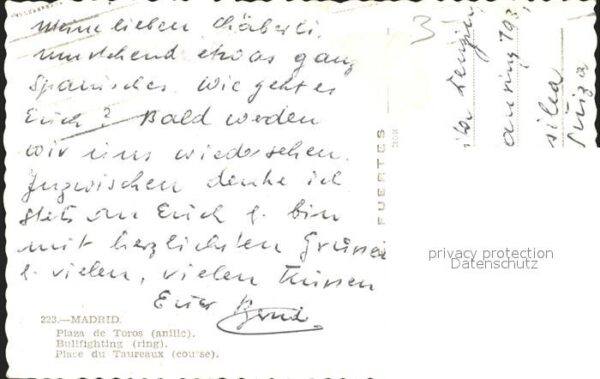 Meine lieben Häberli,
umstehend etwas ganz
Spanisches. Wie geht es
Euch? Bald werden
wir uns wiedersehen.
Inzwischen denke ich
stets an Euch & bin
mit herzlichsten Grüssen
& vielen, vielen Küssen
Euer
223.—MADRID.
Plaza de Toros (anillo).
Bullfighting (ring).
Place du Taureaux (course).
FUERTES
3
privacy protection
Datenschutz